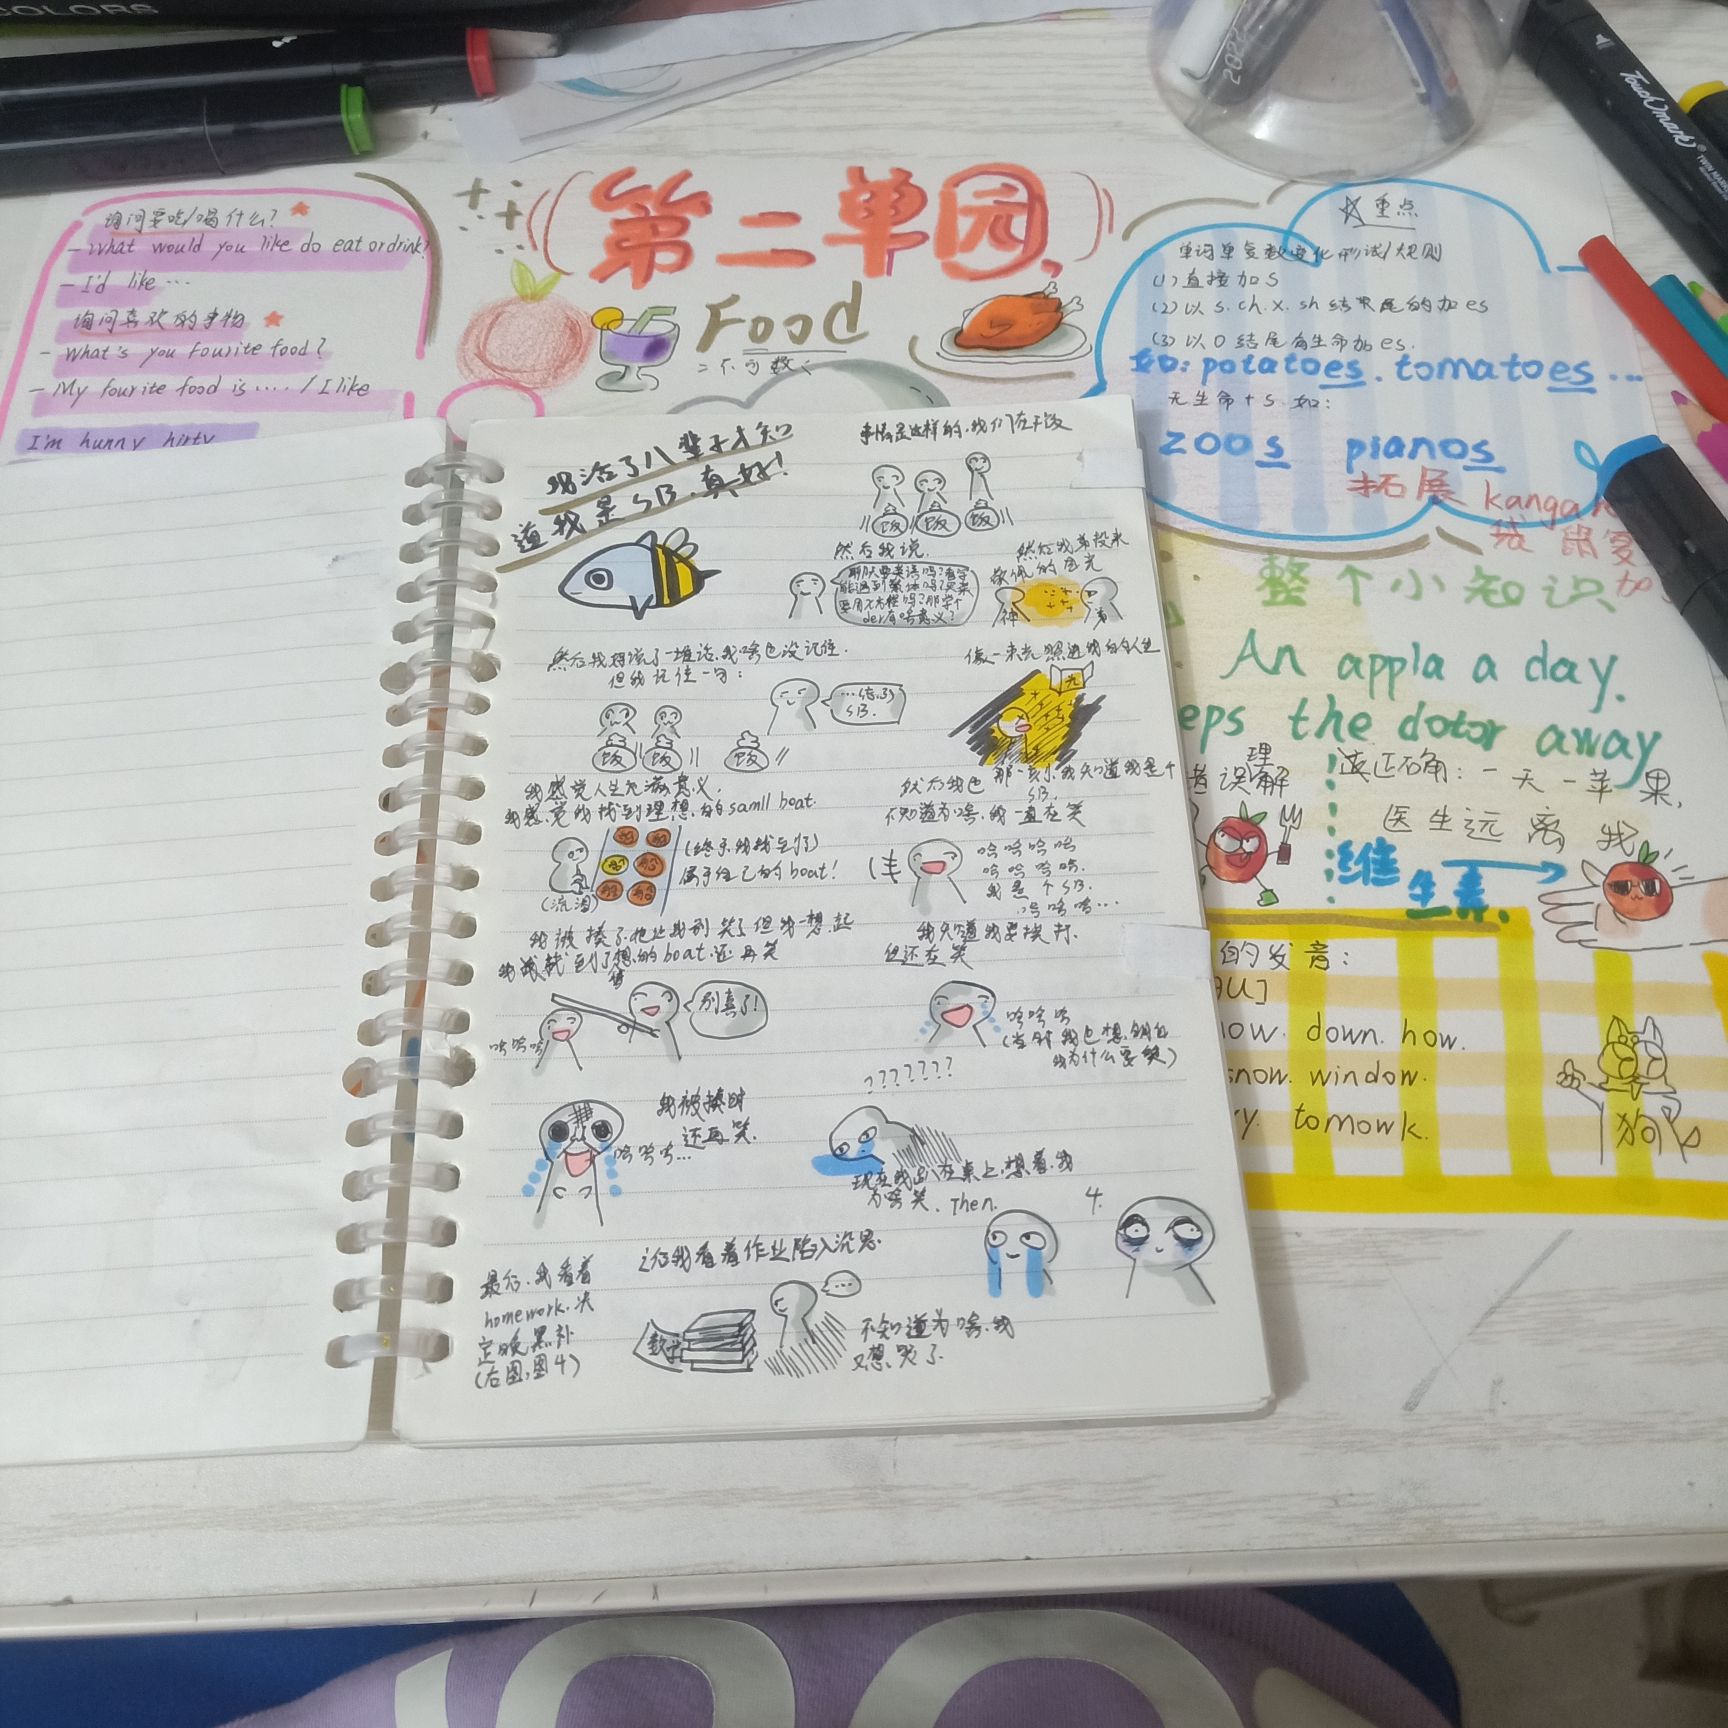 COLORS
2022
Touch mark
TWIN MARK
第二单园
Food
不可数
询问要吃/喝什么?
- What would you like do eat or drink?
- I'd like …
询问喜欢的事物
- What's you Fourite food?
- My fourite food is .... / I like
I'm hunny hirty
重点
单词单复数变化形试/规则
(1) 直接加s
(2) 以 s. ch. x. sh 结束尾的加es
(3) 以O结尾有生命加es.
如: potatoes. tomatoes ...
无生命+s. 如:
zoos pianos
拓展 kanga
整个小知识
An appla a day.
eps the dotor away
理
者误解
正确: 一天一苹果,
医生远离我
维生素.
的发音:
ow. down. how.
snow. window.
y. tomowk.
狗
我活了八辈子才知
道我是SB.真好!
事情是这样的.我们在干饭
饭 饭 饭
然后我说.
然后我弟投来
敬佩的目光
神 弟
然后我妈说了一堆话.我啥也没记住.
但我记住一句:
SB.
饭 饭 饭
像一束光照进我的人生
光
那一刻.我知道我是个
SB.
我感觉人生充满意义.
我感觉我找到理想的samll boat.
船 船
船 船
船 船
(流泪)
(终于我找到了)
属于自己的boat!
然后我也
不知道为啥.我一直在笑
哈哈哈哈
哈哈哈哈.
我是个SB.
哈哈哈…
我被揍了.他让我别笑了但我一想起
我找到了理想的boat.还再笑
哈哈哈
我知道我要挨打.
但还在笑
哈哈哈
(当时我也想明白
我为什么要笑)
我被揍时
还再笑.
哈哈哈…
???????
现在我趴在桌上.想着.我
为啥笑. Then.
4.
之后我看着作业陷入沉思.
数学
…
不知道为啥.我
又想哭了.
最后.我看着
homework.决
定晚黑补
(右图,图4)